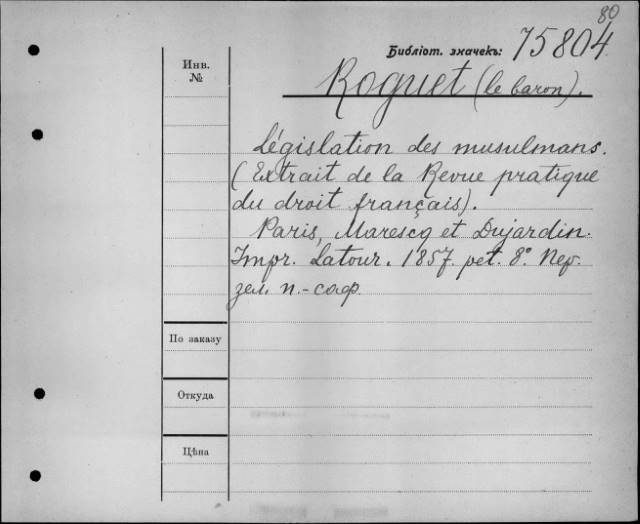 80
Библіот. значекъ: 75804
Инв.
№
Roguet (le baron).
Législation des musulmans.
(Extrait de la Revue pratique
du droit français).
Paris, Marescq et Dujardin.
Impr. Latour. 1857. pet. 8°. Пер.
зел. п.-саф.
По заказу
Откуда
Цѣна